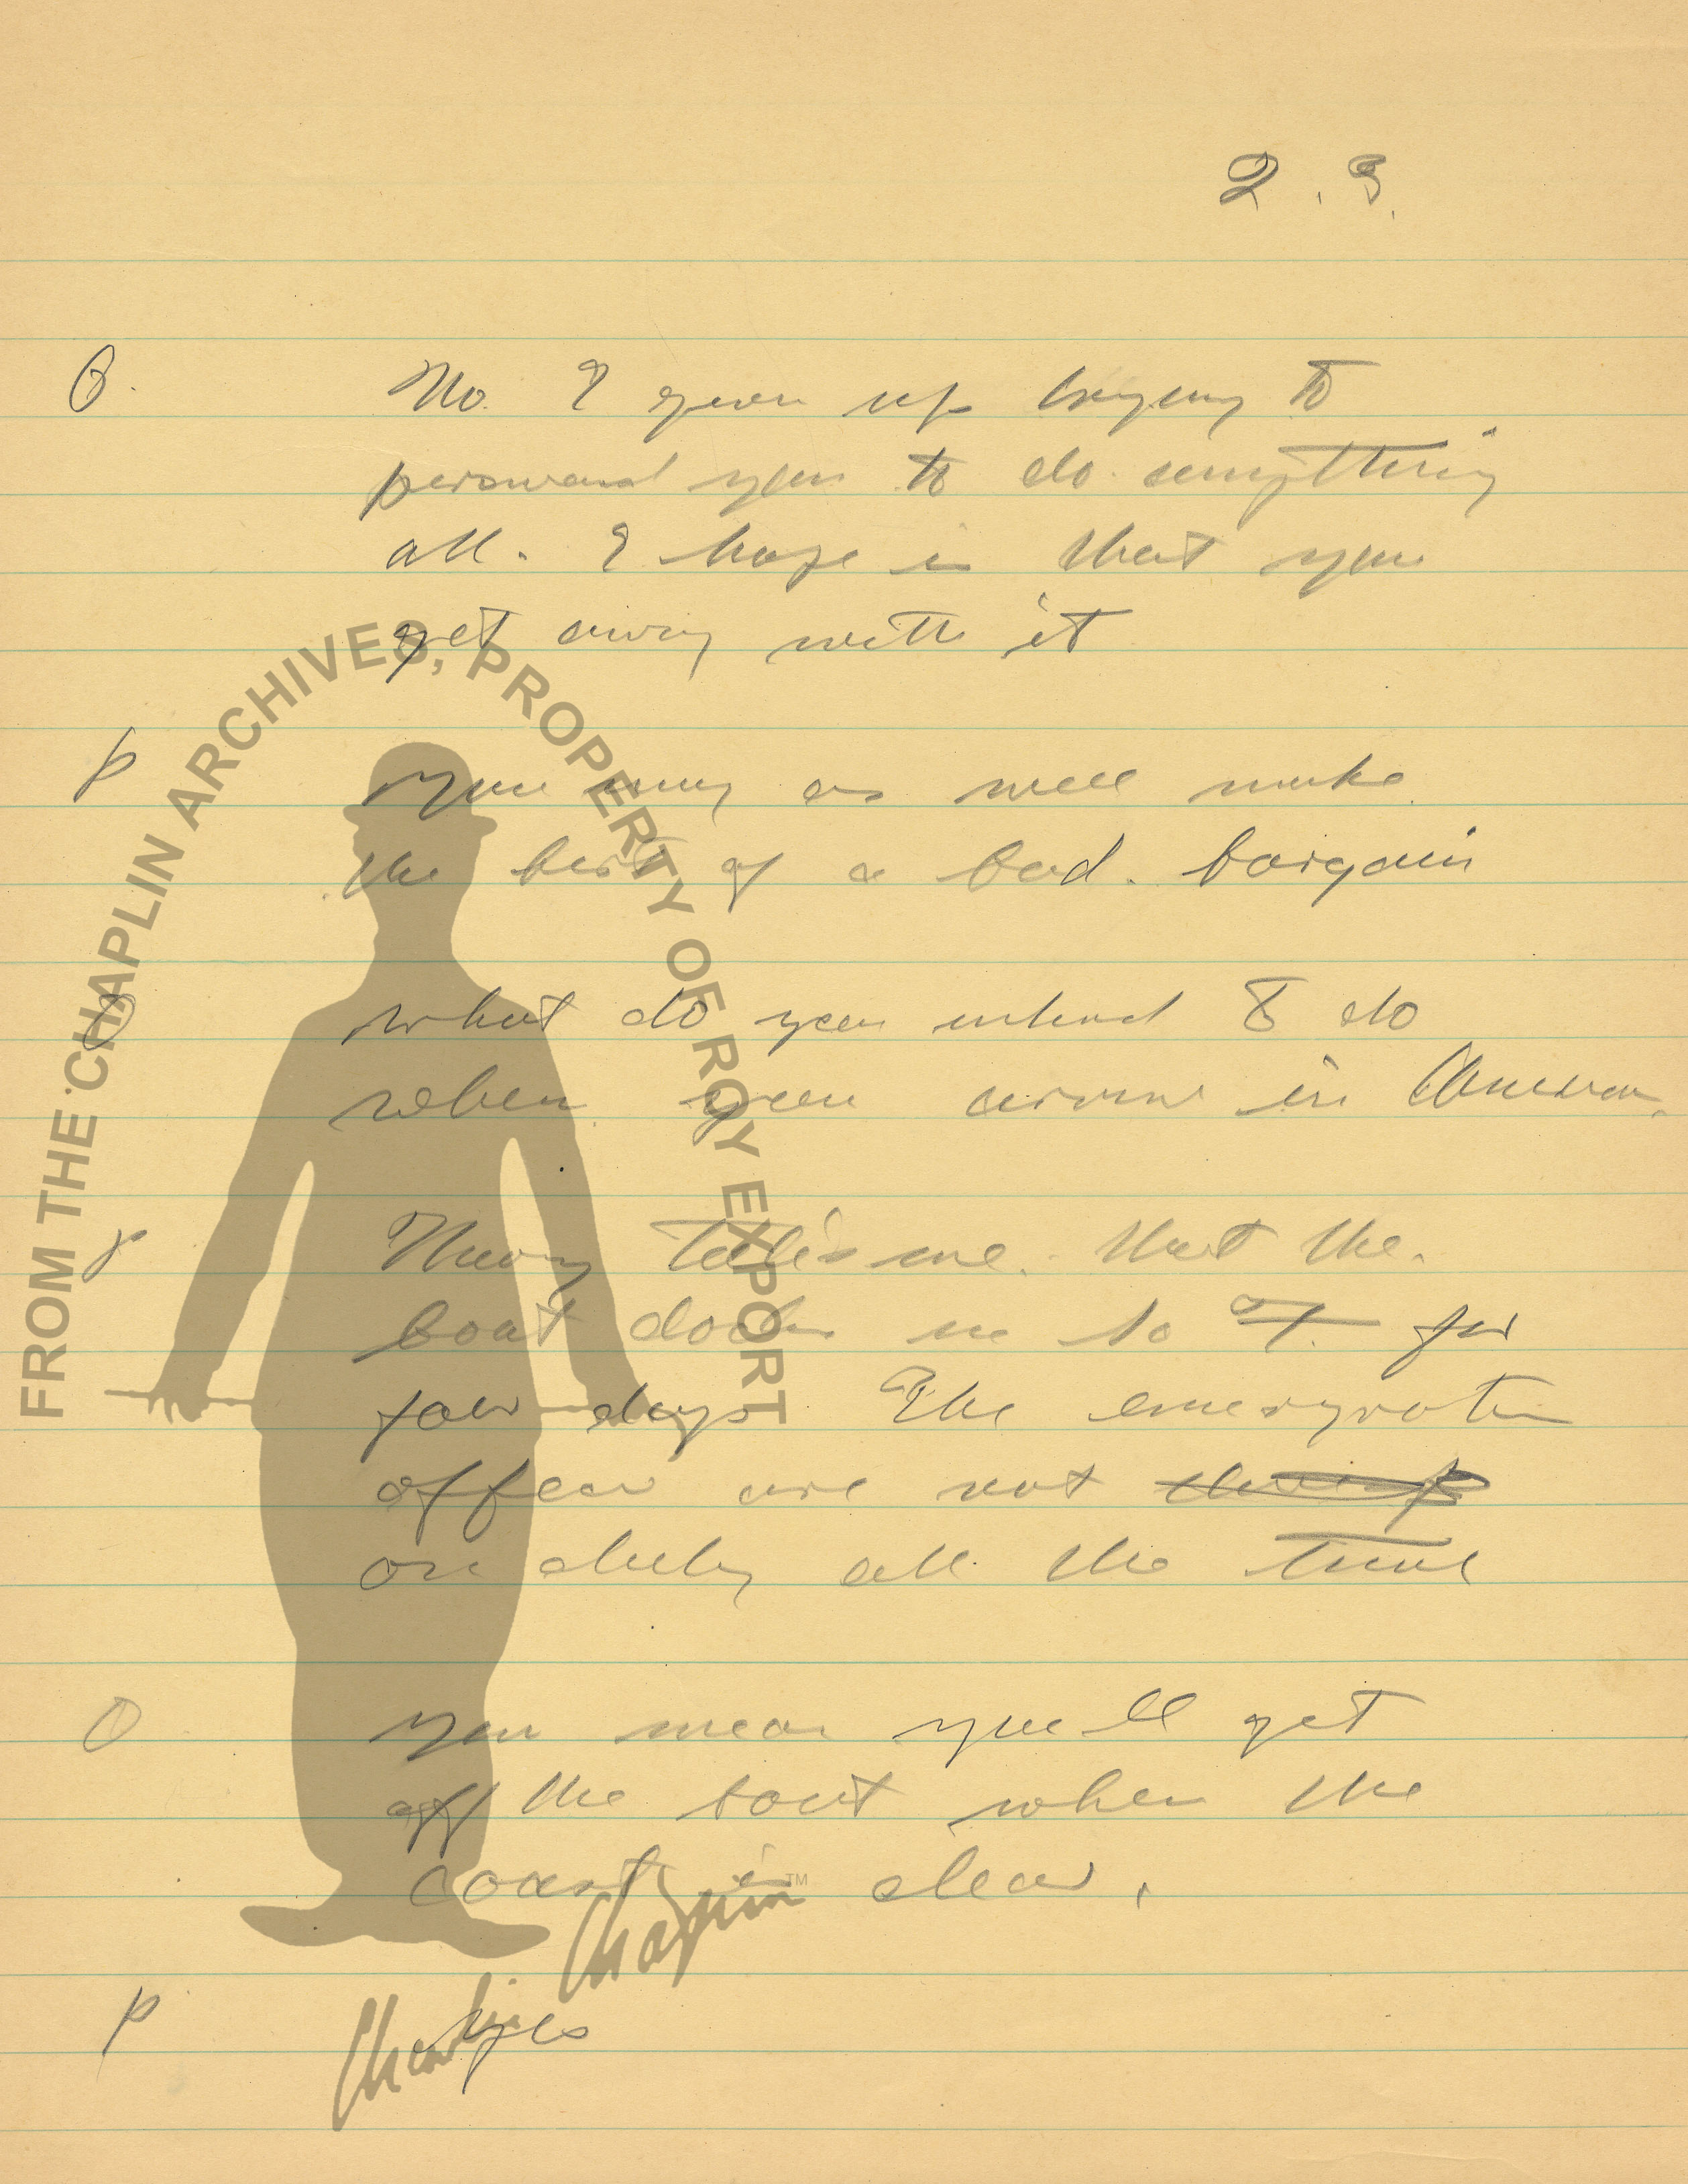 2. 3.
O. No. I given up trying to
persuand you to do anything
all. I hope is that you
get away with it
P You may as well make
the best of a bad. bargain
O what do you intend to do
when you arrive in America.
P tells me. that the
boat docks in so for
four days The emergratin
officer are not
on duty all the time
O you mean you'll get
off the boat when the
coast is clear.
P yes
FROM THE CHAPLIN ARCHIVES, PROPERTY OF ROY EXPORT
Charlie Chaplin ™